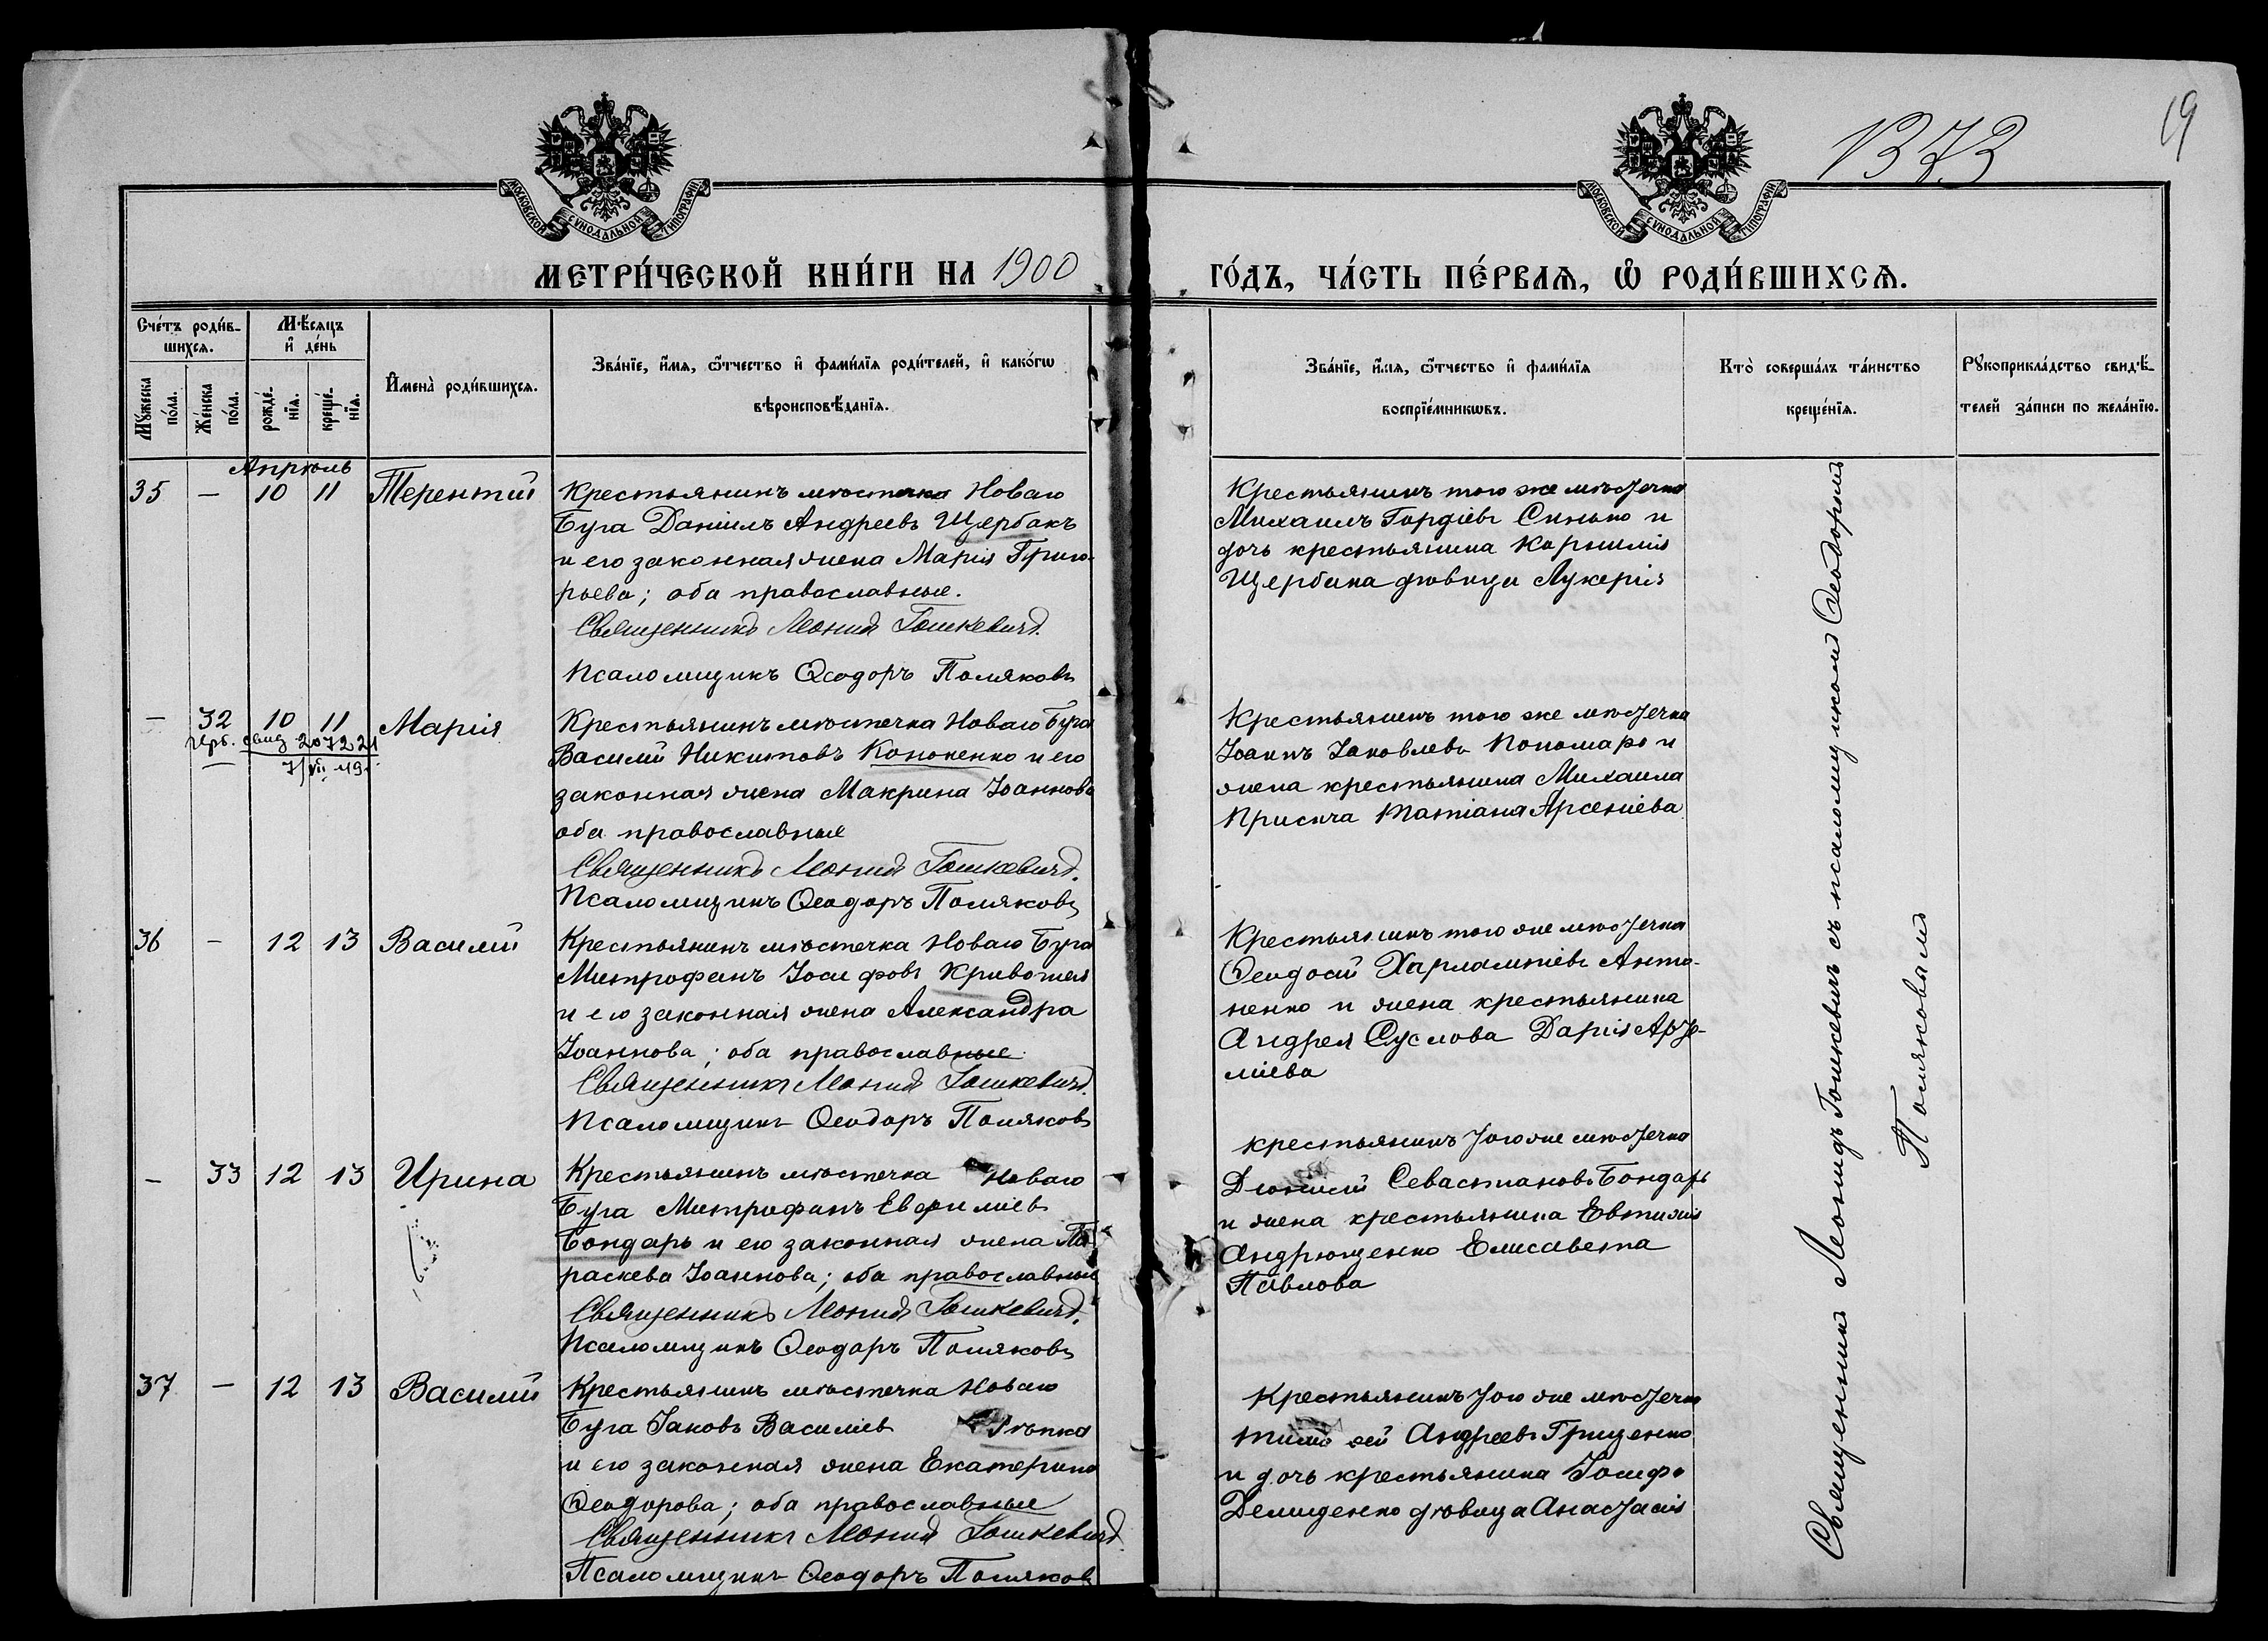 1373
19
МОСКОВСКОЙ СѴНОДАЛЬНОЙ ТИПОГРАФІИ
МОСКОВСКОЙ СѴНОДАЛЬНОЙ ТИПОГРАФІИ
МЕТРИ́ЧЕСКОЙ КНИ́ГИ НА 1900
ГО́ДЪ, ЧА́СТЬ ПЕ́РВАѦ, Ѽ РОДИ́ВШИХСѦ.
Сче́тъ роди́в-
шихсѧ.
Мѣ́сѧцъ
и҆ де́нь
Мꙋ́жеска
по́ла.
Же́нска
по́ла.
рожде́-
нїѧ.
креще́-
нїѧ.
И҆мена̀ роди́вшихсѧ.
Зва́нїе, и҆́мѧ, ѻ҆́тчество и҆ фами́лїѧ роди́телей, и҆ како́гѡ
вѣроисповѣ́данїѧ.
Зва́нїе, и҆́мѧ, ѻ҆́тчество и҆ фами́лїѧ
воспрїе́мникѡвъ.
Кто̀ соверша́лъ та́инство
креще́нїѧ.
Рꙋкоприкла́дство свидѣ́-
телей за́писи по жела́нїю.
Апрѣль
35 — 10 11 Терентій
Крестьянинъ мѣстечка Новаго
Буга Даніилъ Андреевъ Щербакъ
и его законная жена Марія Григо-
рьева; оба православные.
Священникъ Леонид Гошкевичъ.
Псаломщикъ Ѳеодоръ Поляковъ
Крестьянинъ того же мѣстечка
Михаилъ Гордіевъ Синько и
дочь крестьянина Корнилія
Щербака дѣвица Лукерія
— 32 10 11 Марія
свид 207221
7/VII 19
Крестьянинъ мѣстечка Новаго Буга
Василій Никитовъ Кононенко и его
законная жена Макрина Іоаннова
оба православные
Священникъ Леонид Гошкевичъ.
Псаломщикъ Ѳеодоръ Поляковъ
Крестьянинъ того же мѣстечка
Іоаннъ Іаковлевъ Пономарь и
жена крестьянина Михаила
Присича Татіана Арсеніева
36 — 12 13 Василій
Крестьянинъ мѣстечка Новаго Буга
Митрофанъ Іосифовъ Кривошея
и его законная жена Александра
Іоаннова; оба православные
Священникъ Леонид Гошкевичъ.
Псаломщикъ Ѳеодоръ Поляковъ
Крестьянинъ того же мѣстечка
Ѳеодосій Харлампіевъ Анто-
ненко и жена крестьянина
Андрея Суслова Дарія Арте-
міева
— 33 12 13 Ирина
Крестьянинъ мѣстечка Новаго
Буга Митрофанъ Евфиміевъ
Бондарь и его законная жена Па
раскева Іоаннова; оба православные
Священникъ Леонид Гошкевичъ.
Псаломщикъ Ѳеодоръ Поляковъ
Крестьянинъ того же мѣстечка
Діонисій Севастіановъ Бондарь
и жена крестьянина Евтихія
Андрющенко Елисавета
Павлова
37 — 12 13 Василій
Крестьянинъ мѣстечка Новаго
Буга Іаковъ Василіевъ Рѣпка
и его законная жена Екатерина
Ѳеодорова; оба православные
Священникъ Леонид Гошкевичъ
Псаломщикъ Ѳеодоръ Поляковъ
Крестьянинъ того же мѣстечка
Тимоѳей Андреевъ Гриценко
и дочь крестьянина Іосифа
Демиденко дѣвица Анастасія
Священникъ Леонидъ Гошкевичъ съ псаломщикомъ Ѳеодоромъ
Поляковымъ